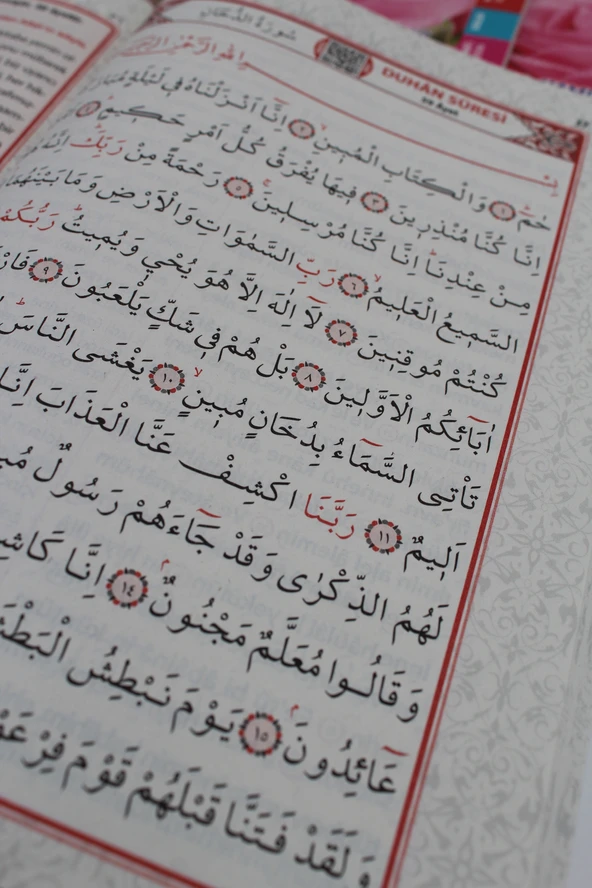 سُورَةُ الدُّخَانِ
DUHÂN SÛRESİ
59 Âyet
بِسْمِ اللّٰهِ الرَّحْمٰنِ الرَّحِيمِ
حٰمٓ ﴿١﴾ وَالْكِتَابِ الْمُبِينِ ﴿٢﴾ اِنَّٓا اَنْزَلْنَاهُ فِي لَيْلَةٍ
اِنَّا كُنَّا مُنْذِرِينَ ﴿٣﴾ فِيهَا يُفْرَقُ كُلُّ اَمْرٍ حَكِيمٍ
مِنْ عِنْدِنَا اِنَّا كُنَّا مُرْسِلِينَ ﴿٥﴾ رَحْمَةً مِنْ رَبِّكَ اِنَّهُ
السَّمِيعُ الْعَلِيمُ ﴿٦﴾ رَبِّ السَّمٰوَاتِ وَالْاَرْضِ وَمَا بَيْنَهُمَا
كُنْتُمْ مُوقِنِينَ ﴿٧﴾ لَٓا اِلٰهَ اِلَّا هُوَ يُحْيِي وَيُمِيتُ رَبُّكُمْ
اٰبَٓائِكُمُ الْاَوَّلِينَ ﴿٨﴾ بَلْ هُمْ فِي شَكٍّ يَلْعَبُونَ ﴿٩﴾
تَأْتِي السَّمَٓاءُ بِدُخَانٍ مُبِينٍ ﴿١٠﴾ يَغْشَى النَّاسَ
اَلِيمٌ ﴿١١﴾ رَبَّنَا اكْشِفْ عَنَّا الْعَذَابَ اِنَّا
لَهُمُ الذِّكْرٰى وَقَدْ جَٓاءَهُمْ رَسُولٌ
وَقَالُوا مُعَلَّمٌ مَجْنُونٌ ﴿١٤﴾ اِنَّا
عَٓائِدُونَ ﴿١٥﴾ يَوْمَ نَبْطِشُ
وَلَقَدْ فَتَنَّا قَبْلَهُمْ قَوْمَ